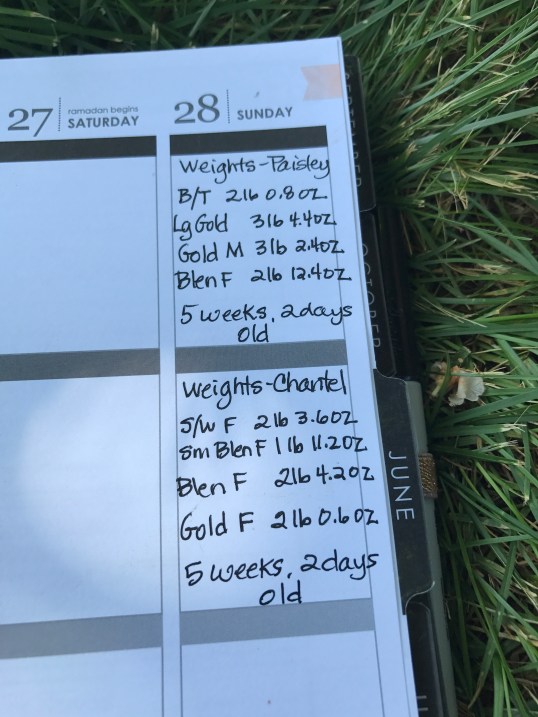 27 ramadan begins SATURDAY
28 SUNDAY
Weights-Paisley
B/T 2lb 0.8oz
Lg Gold 3lb 4.4oz
Gold M 3lb 2.4oz
Blen F 2lb 12.4oz
5 weeks, 2days
old
Weights-Chantel
S/W F 2lb 3.6oz
Sm Blen F 1lb 11.2oz
Blen F 2lb 4.2oz
Gold F 2lb 0.6oz
5 weeks, 2days
old
OCTOBER
JUNE